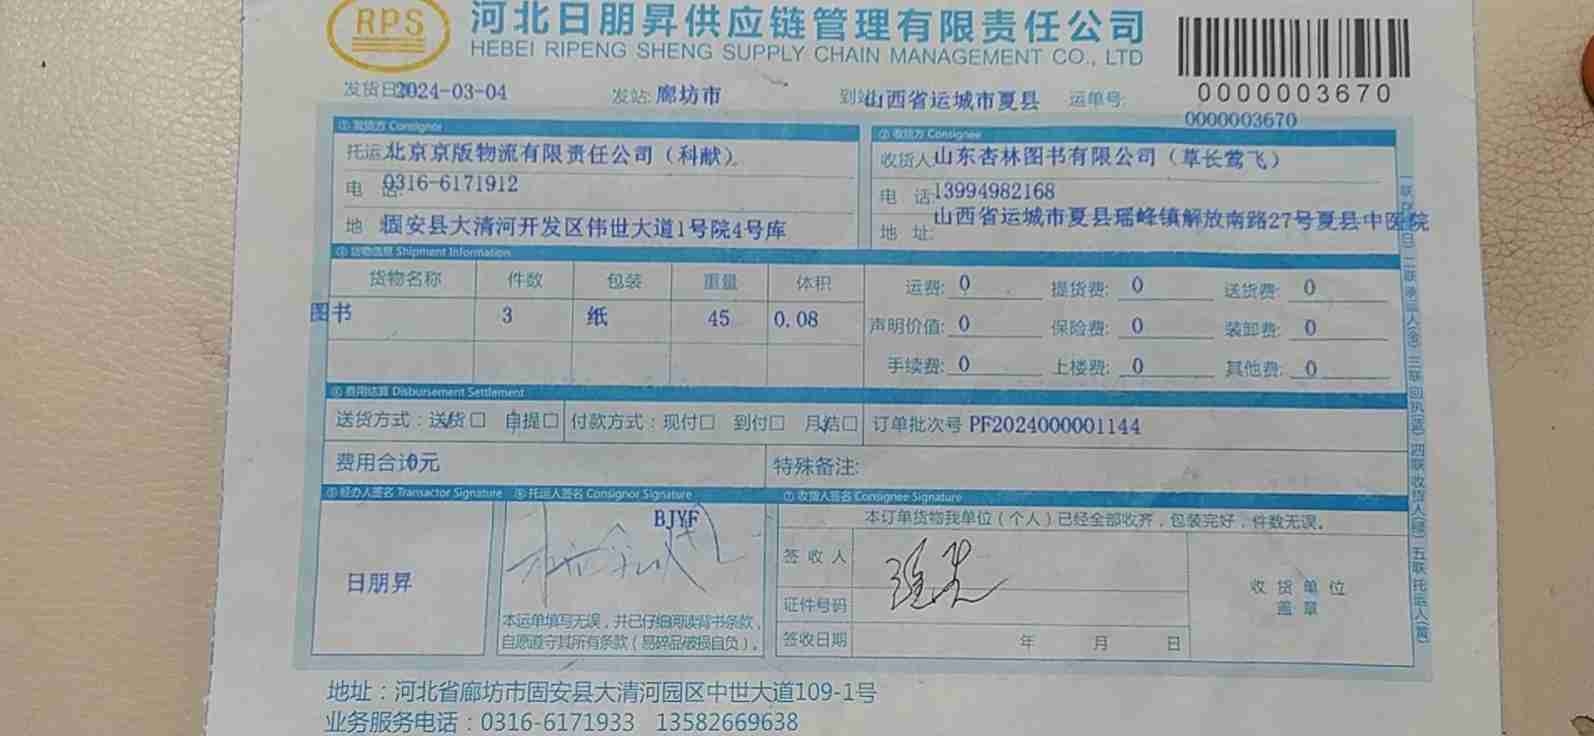 RPS
河北日朋昇供应链管理有限责任公司
HEBEI RIPENG SHENG SUPPLY CHAIN MANAGEMENT CO., LTD
0000003670
发货日 2024-03-04 发站: 廊坊市 到站 山西省运城市夏县 运单号: 0000003670
① 发货方 Consignor
托运 北京京版物流有限责任公司（科献）
电 话: 0316-6171912
地 固安县大清河开发区伟世大道1号院4号库
② 收货方 Consignee
收货人 山东杏林图书有限公司（草长莺飞）
电 话 13994982168
地 址: 山西省运城市夏县瑶峰镇解放南路27号夏县中医院
③ 货物信息 Shipment Information
货物名称 件数 包装 重量 体积
图书 3 纸 45 0.08
运费: 0 提货费: 0 送货费: 0
声明价值: 0 保险费: 0 装卸费: 0
手续费: 0 上楼费: 0 其他费: 0
④ 费用结算 Disbursement Settlement
送货方式：送货□ 自提□ 付款方式：现付□ 到付□ 月结□ 订单批次号 PF2024000001144
费用合计0元 特殊备注:
⑤ 经办人签名 Transactor Signature
日朋昇
⑥ 托运人签名 Consignor Signature
BJYF
本运单填写无误，并已仔细阅读背书条款，
自愿遵守其所有条款（易碎品破损自负）。
⑦ 收货人签名 Consignee Signature
本订单货物我单位（个人）已经全部收齐，包装完好，件数无误。
签 收 人
证件号码
签收日期 年 月 日
收 货 单 位
盖 章
地址：河北省廊坊市固安县大清河园区中世大道109-1号
业务服务电话：0316-6171933 13582669638